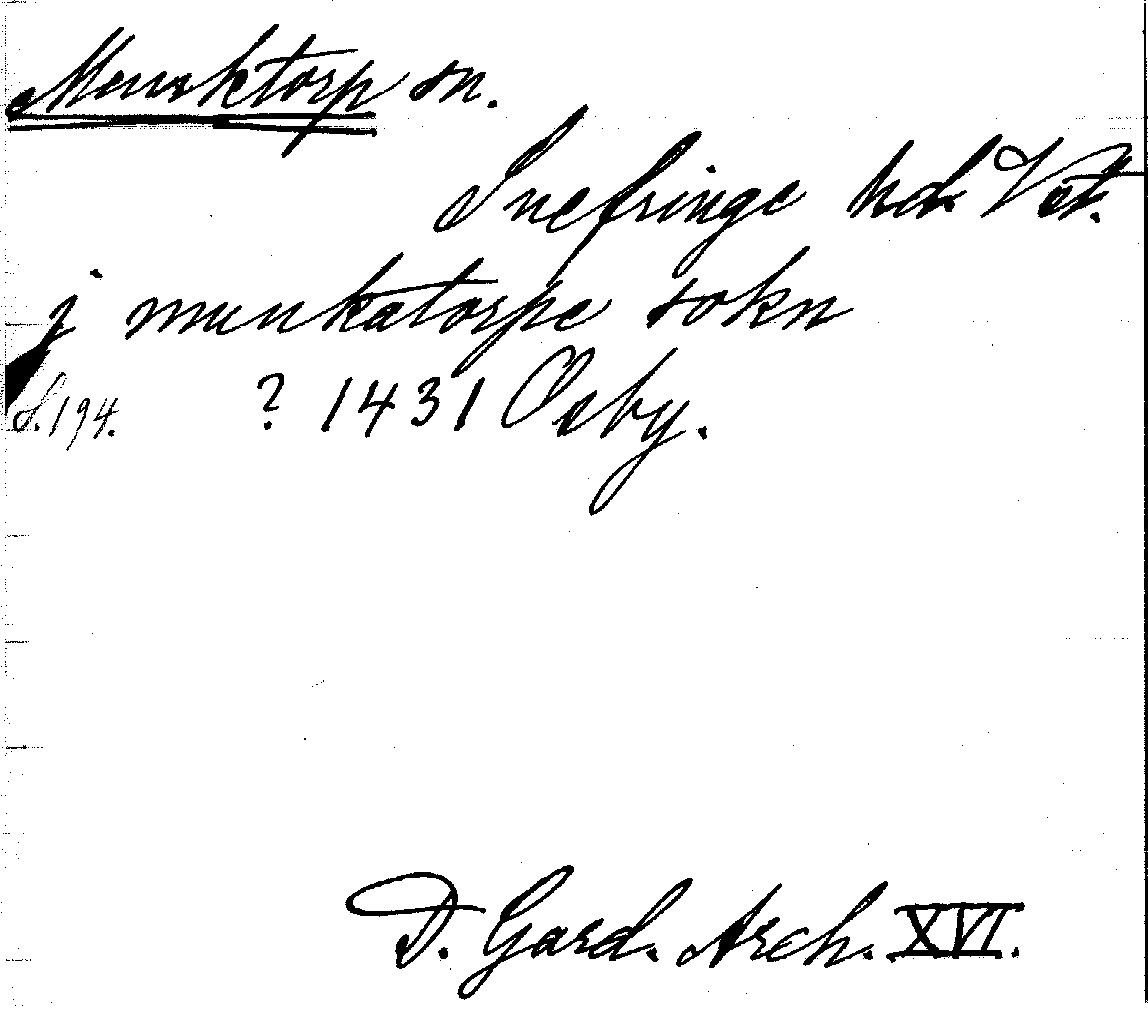 Munktorp sn.
Snefringe hd. Vstm.
j munkatorpe sokn
S. 194. ? 1431 Orby.
D. Gard. Arch. XVI.